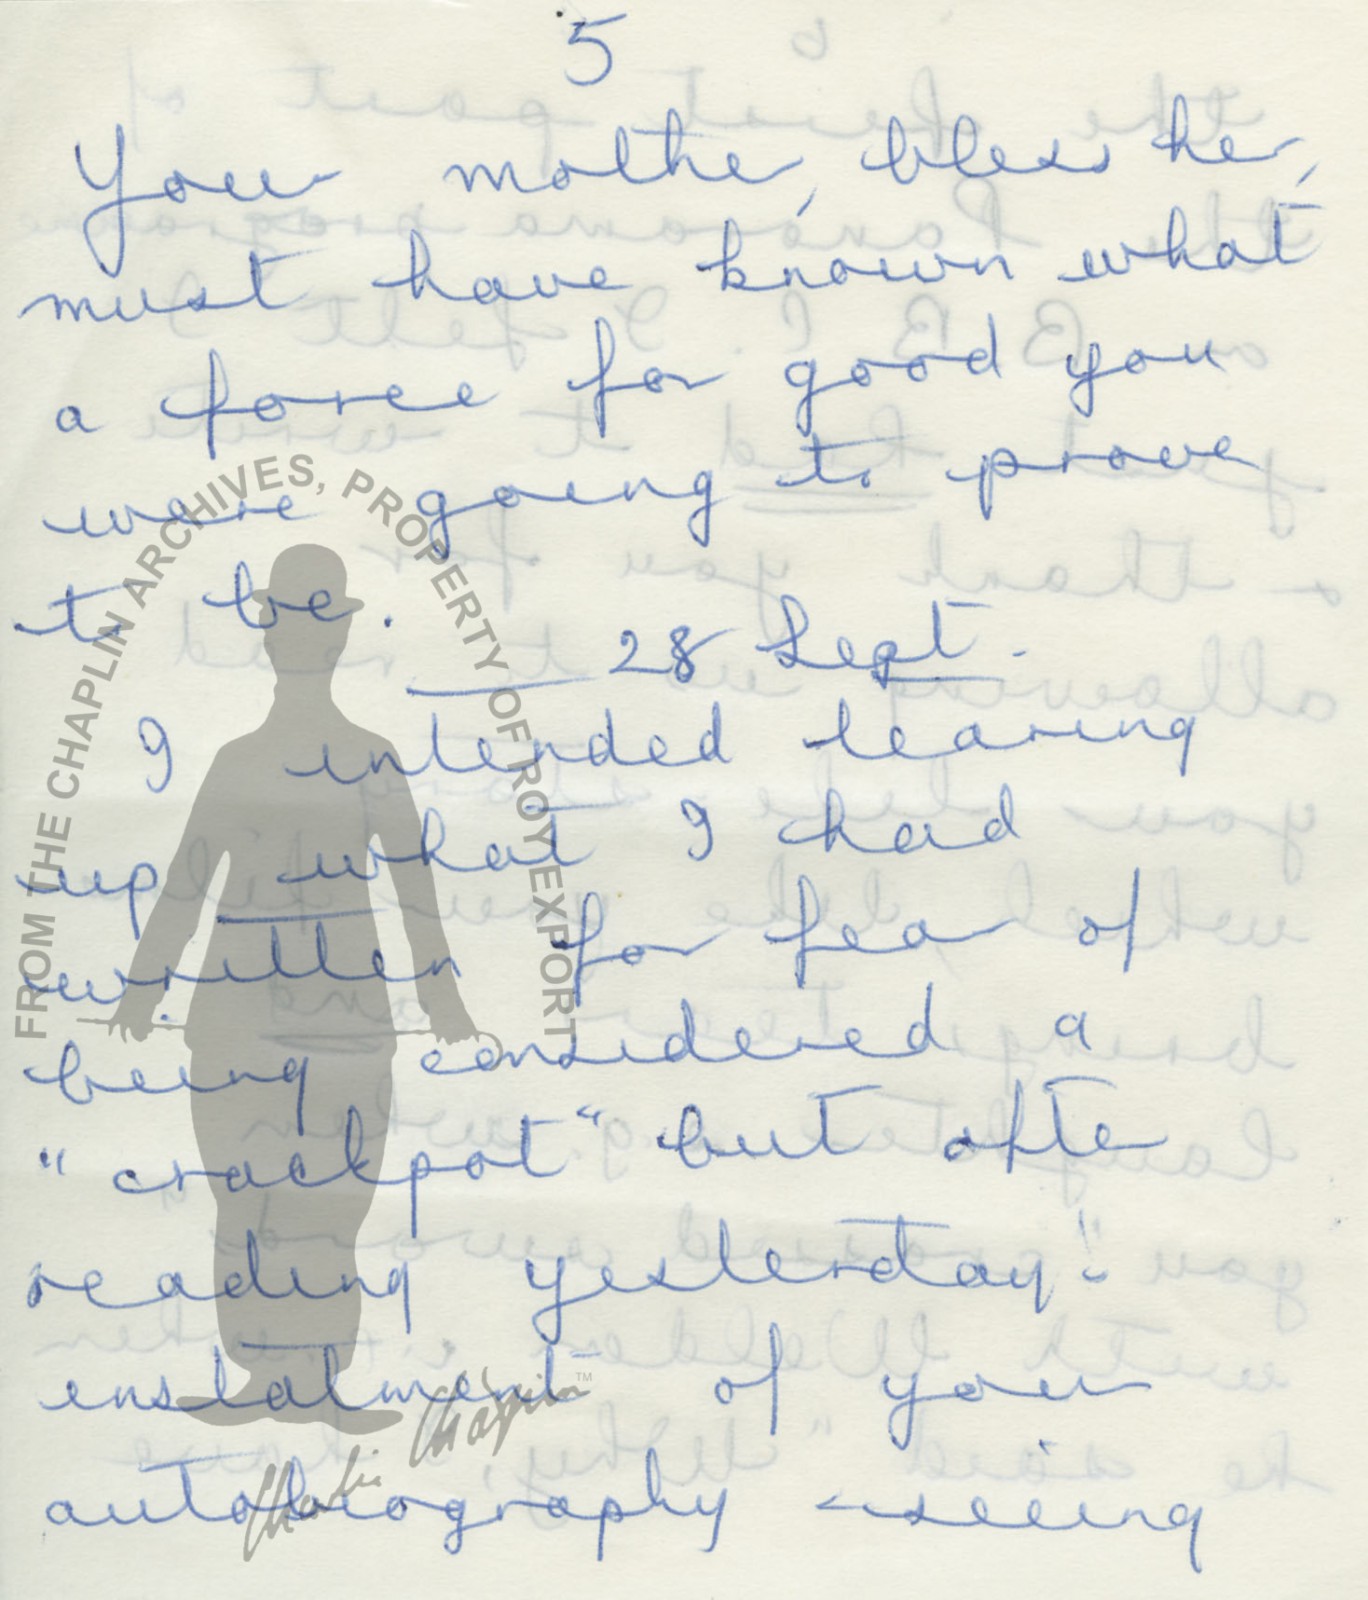 5
Your mother, bless her,
must have known what
a force for good you
were going to prove
to be.
28 Sept.
I intended tearing
up what I had
written for fear of
being considered a
"crackpot" but after
reading yesterday's
instalment of your
autobiography - seeing
FROM THE CHAPLIN ARCHIVES, PROPERTY OF ROY EXPORT
Charlie Chaplin™